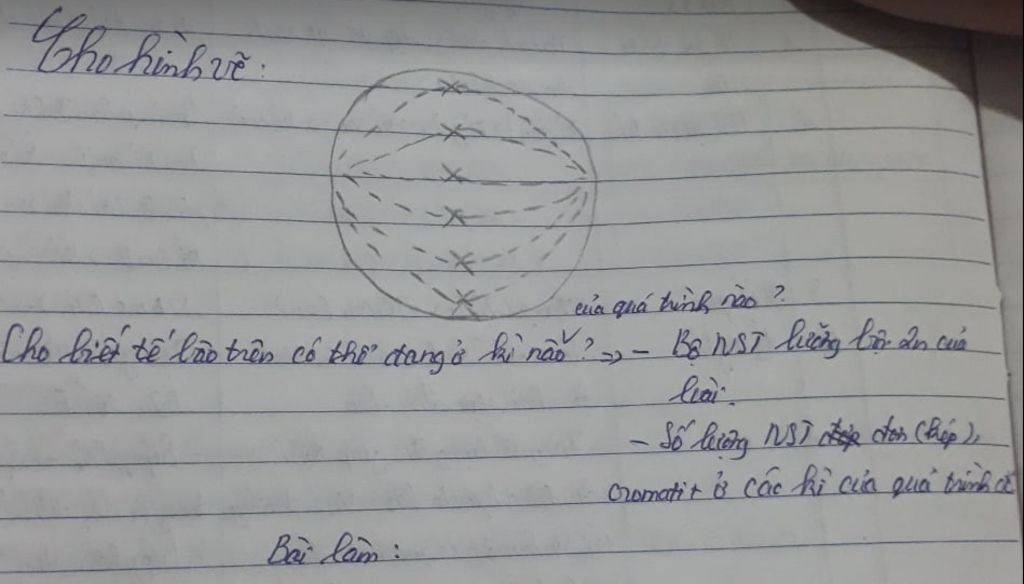 Cho hình vẽ:
của quá trình nào?
Cho biết tế bào trên có thể đang ở kì nào? => - Bộ NST lưỡng bội 2n của
loài.
- Số lượng NST đơn (kép),
cromatit ở các kì của quá trình
Bài làm: